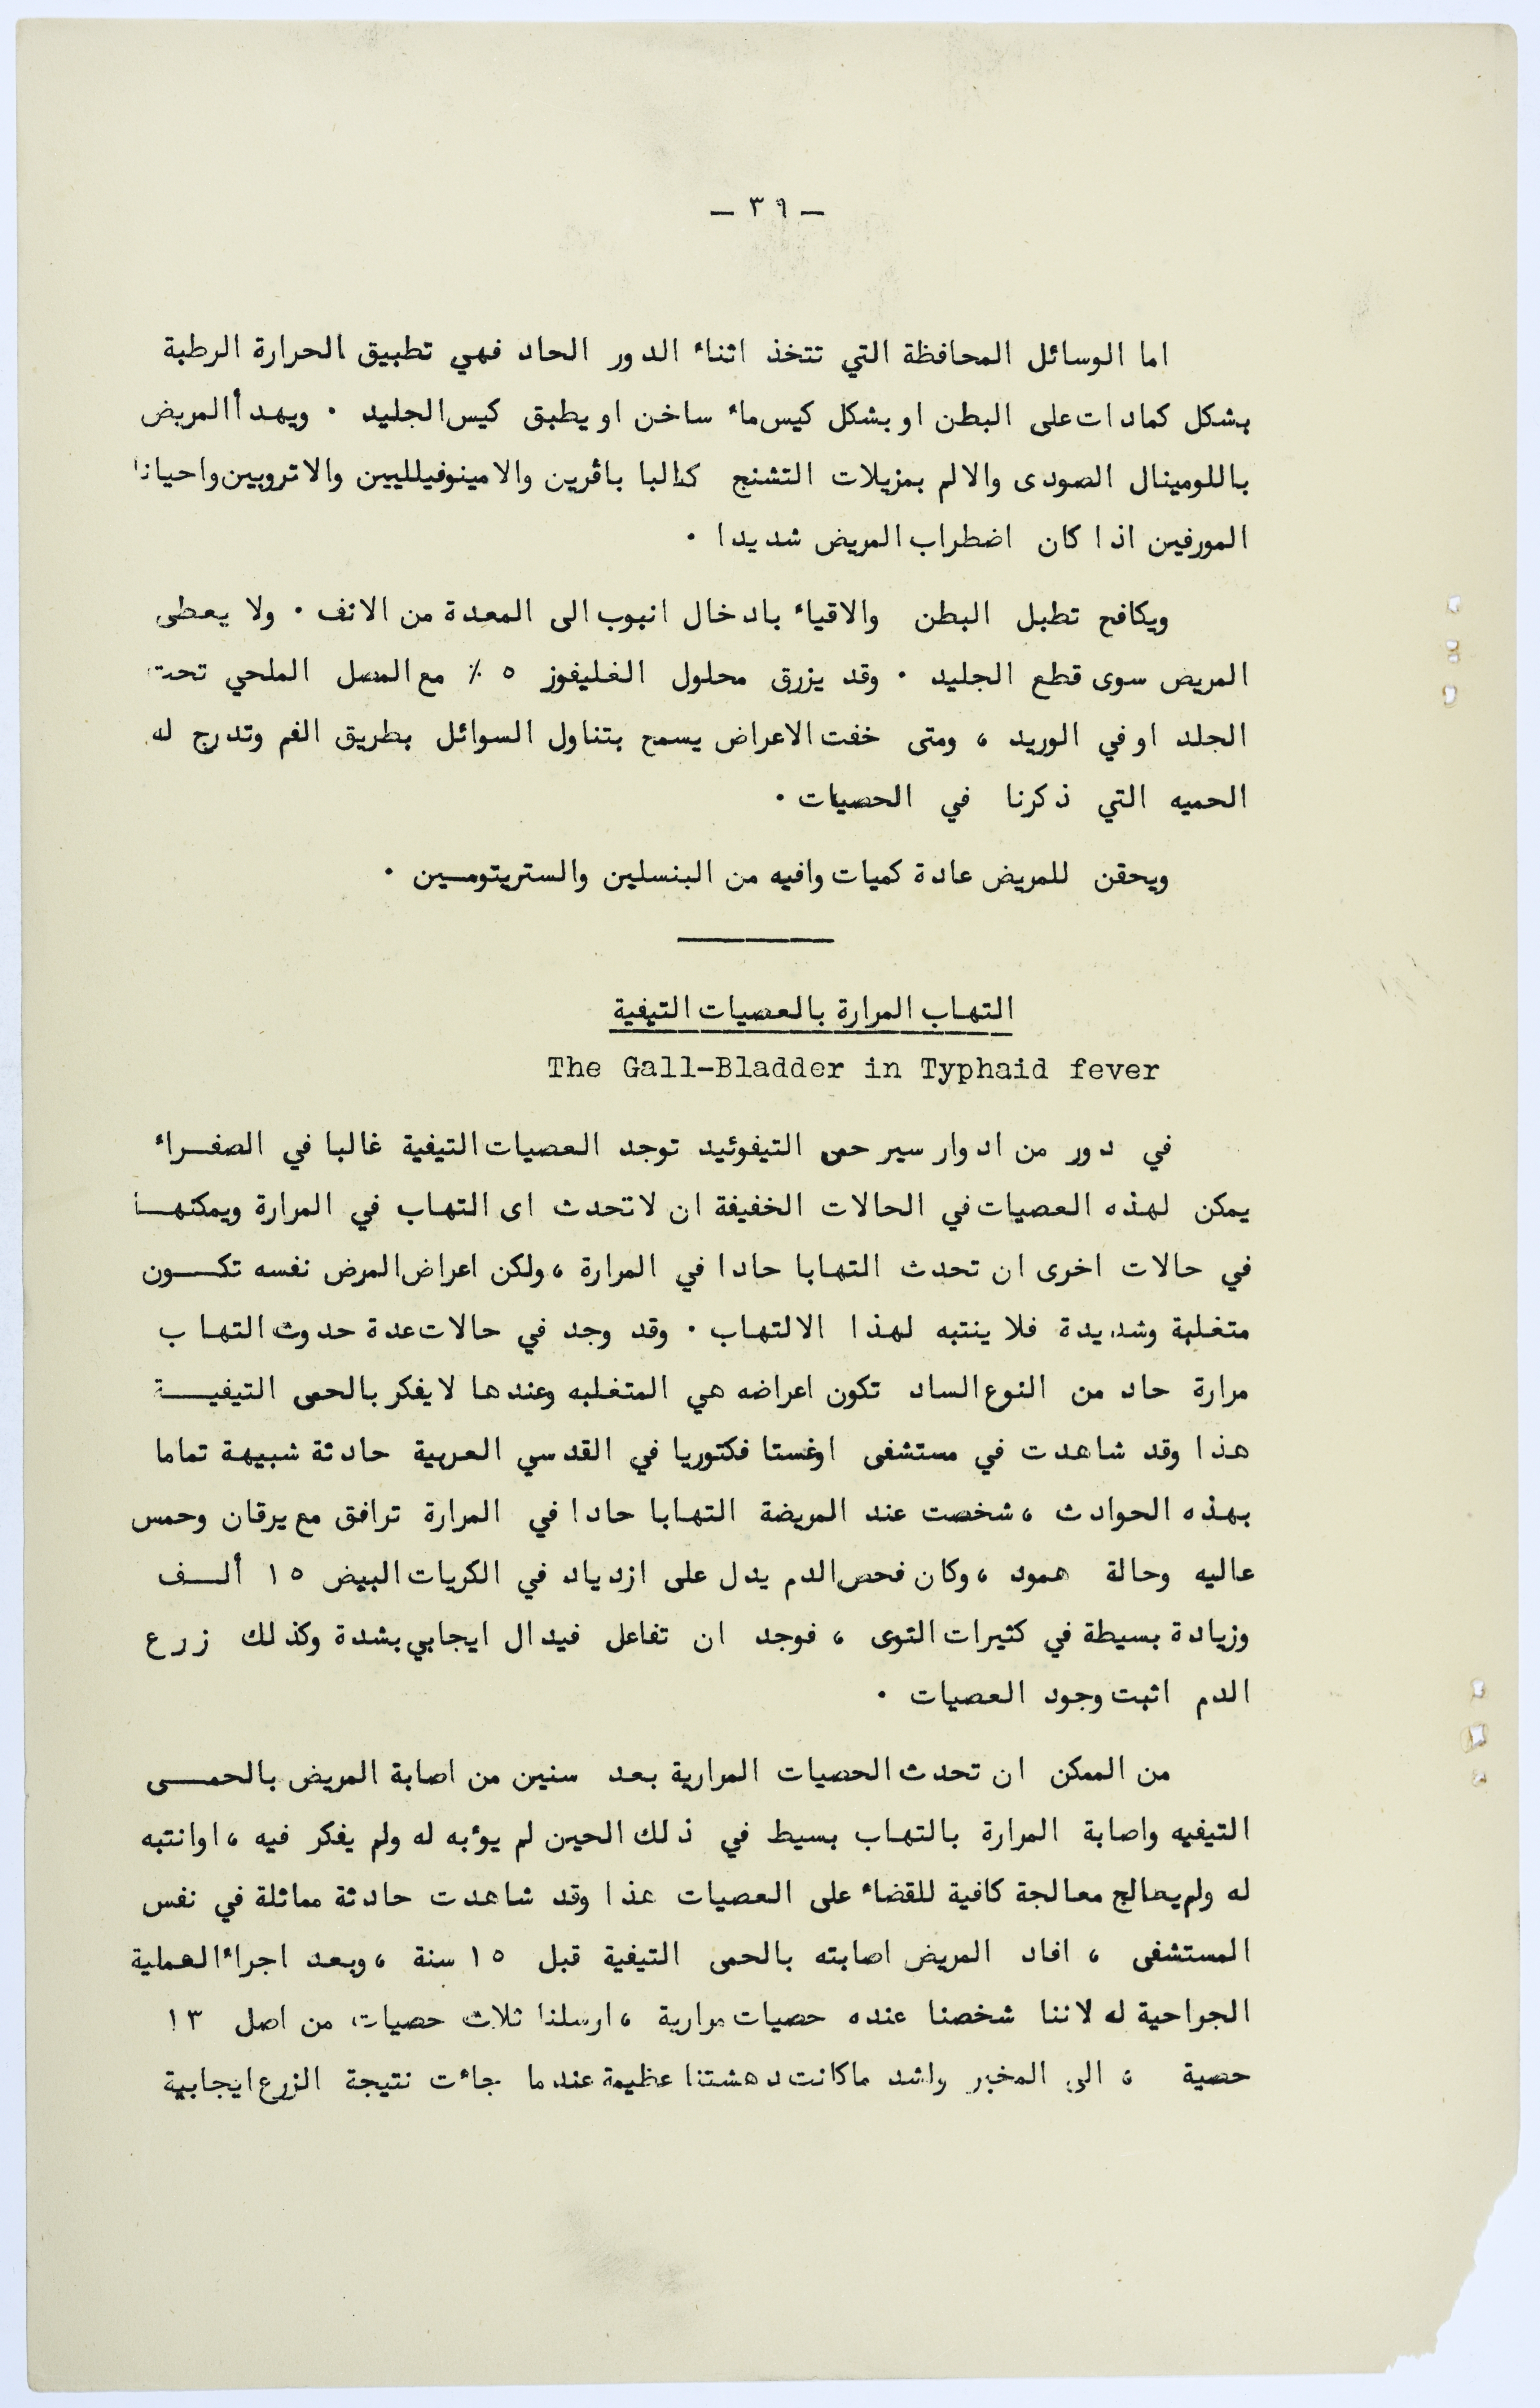 — ٣٩ —
اما الوسائل المحافظة التي تتخذ اثناء الدور الحاد فهي تطبيق الحرارة الرطبة
بشكل كمادات على البطن او بشكل كيس ماء ساخن او يطبق كيس الجليد ٠ ويهدأ المريض
باللومينال الصودى والالم بمزيلات التشنج كالبا باڤرين والامينوفيلليين والاتروبين واحيانا
المورفين اذا كان اضطراب المريض شديدا ٠
ويكافح تطبل البطن والاقياء بادخال انبوب الى المعدة من الانف ٠ ولا يعطى
المريض سوى قطع الجليد ٠ وقد يزرق محلول الغليفوز ٥ ٪ مع المصل الملحي تحت
الجلد او في الوريد ، ومتى خفت الاعراض يسمح بتناول السوائل بطريق الفم وتدرج له
الحميه التي ذكرنا في الحصيات ٠
ويحقن للمريض عادة كميات وافيه من البنسلين والستريتومسين ٠
التهاب المرارة بالعصيات التيفية
The Gall-Bladder in Typhaid fever
في دور من ادوار سير حمى التيفوئيد توجد العصيات التيفية غالبا في الصفراء
يمكن لهذه العصيات في الحالات الخفيفة ان لا تحدث اى التهاب في المرارة ويمكنها
في حالات اخرى ان تحدث التهابا حادا في المرارة ، ولكن اعراض المرض نفسه تكون
متغلبة وشديدة فلا ينتبه لهذا الالتهاب ٠ وقد وجد في حالات عدة حدوث التهاب
مرارة حاد من النوع الساد تكون اعراضه هي المتغلبه وعندها لا يفكر بالحمى التيفية
هذا وقد شاهدت في مستشفى اوغستا فكتوريا في القدسي العربية حادثة شبيهة تماما
بهذه الحوادث ، شخصت عند المريضة التهابا حادا في المرارة ترافق مع يرقان وحمس
عاليه وحالة همود ، وكان فحص الدم يدل على ازدياد في الكريات البيض ١٥ ألف
وزيادة بسيطة في كثيرات النوى ، فوجد ان تفاعل فيدال ايجابي بشدة وكذلك زرع
الدم اثبت وجود العصيات ٠
من الممكن ان تحدث الحصيات المرارية بعد سنين من اصابة المريض بالحمى
التيفيه واصابة المرارة بالتهاب بسيط في ذلك الحين لم يؤبه له ولم يفكر فيه ، اوانتبه
له ولم يعالج معالجة كافية للقضاء على العصيات هذا وقد شاهدت حادثة مماثلة في نفس
المستشفى ، افاد المريض اصابته بالحمى التيفية قبل ١٥ سنة ، وبعد اجراء العملية
الجراحية له لاننا شخصنا عنده حصيات مرارية ، ارسلنا ثلاث حصيات من اصل ١٣
حصية ، الى المخبر واشد ماكانت دهشتنا عظيمة عندما جاءت نتيجة الزرع ايجابية